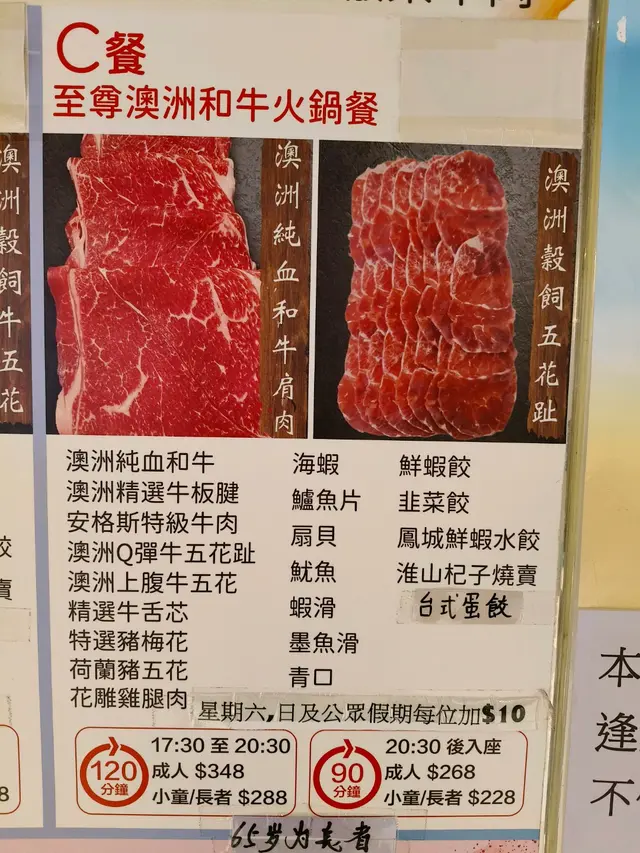 C餐
至尊澳洲和牛火鍋餐
澳洲穀飼牛五花
澳洲純血和牛肩肉
澳洲穀飼五花趾
澳洲純血和牛
澳洲精選牛板腱
安格斯特級牛肉
澳洲Q彈牛五花趾
澳洲上腹牛五花
精選牛舌芯
特選豬梅花
荷蘭豬五花
花雕雞腿肉
海蝦
鱸魚片
扇貝
魷魚
蝦滑
墨魚滑
青口
鮮蝦餃
韭菜餃
鳳城鮮蝦水餃
淮山杞子燒賣
台式蛋餃
星期六,日及公眾假期每位加$10
120
分鐘
17:30 至 20:30
成人 $348
小童/長者 $288
90
分鐘
20:30 後入座
成人 $268
小童/長者 $228
65岁为長者
餃
賣
8
本
逢
不